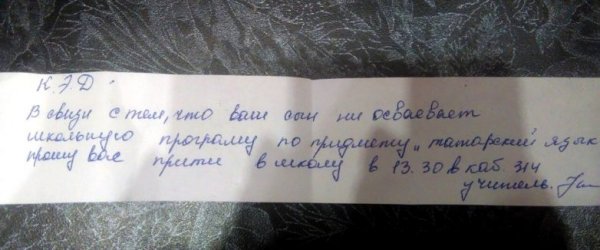 К.Э.Д.
В связи с тем, что ваш сын ни осваевает
школьную програму по придмету "татарский язык
прошу вас прити в школу в 13.30 в каб. 314
учитель.